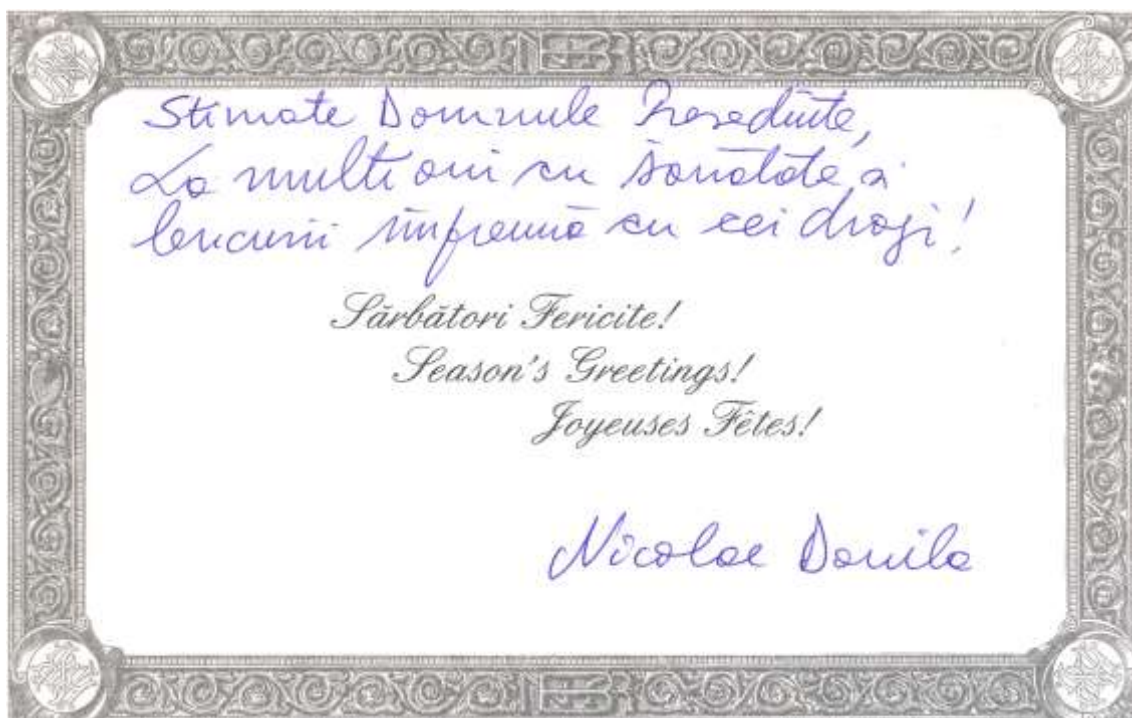 Stimate Domnule Presedinte,
La multi ani cu sănătate și
bucurii împreună cu cei dragi!
Sărbători Fericite!
Season's Greetings!
Joyeuses Fêtes!
Nicolae Danila